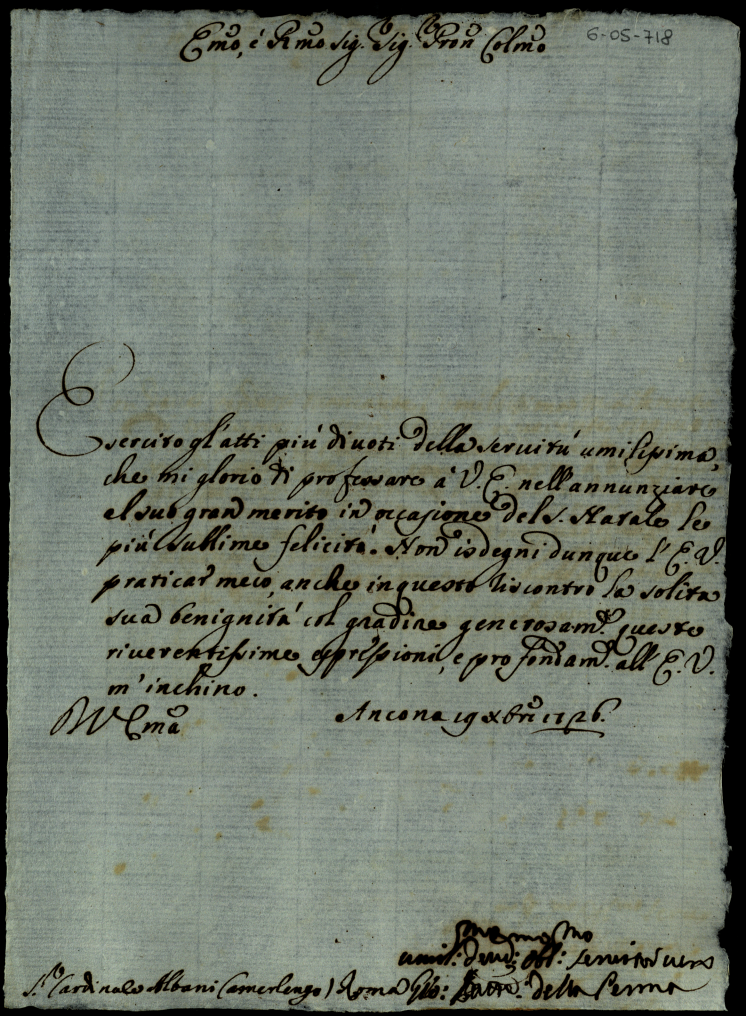 Emo, é Rmo Sig.r Sig.r Pron Colmo
6-05-718
Esercito gl'atti piú diuoti della seruitú umilissima,
che mi glorio di professare a V. E. nell'annunziare
al suo gran merito in occasione del S. Natale le
piú sublime felicitá. Non isdegni dunque l'E. V.
praticar meco, anche in questo riscontro la solita
sua benignitá col gradire generosam.te queste
riuerentissime espressioni, e profondam.te all'E. V.
m'inchino.
V Ema
Ancona 19 Xbre 1726.
umil.mo deu.mo obl.mo seruitor uero
S.r Cardinale Albani Camerlengo) Roma Gio: della Penna